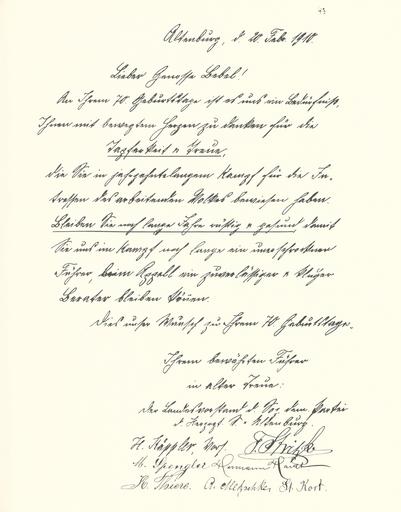 Altenburg, d. 20. Febr. 1910.
Lieber Genosse Bebel!
An Ihrem 70. Geburtstage ist es uns ein Bedürfniß,
Ihnen mit bewegtem Herzen zu danken für die
Tapferkeit u. Treue,
die Sie in jahrzehntelangem Kampf für die In-
tressen des arbeitenden Volkes bewiesen haben.
Bleiben Sie noch lange Jahre rüstig u. gesund damit
Sie uns im Kampf noch lange ein unerschrockener
Führer, beim ein zuverlässiger u. kluger
Berater bleiben können.
Dies unser Wunsch zu Ihrem 70. Geburtstage.
Ihrem bewährten Führer
in alter Treue:
Der Landesvorstand d. Soz. dem. Partei
d. Herzogt. S. Altenburg.
H. Käppler, Vors.
M. Spengler Hermann
H. Thiere. A. St. Kort.